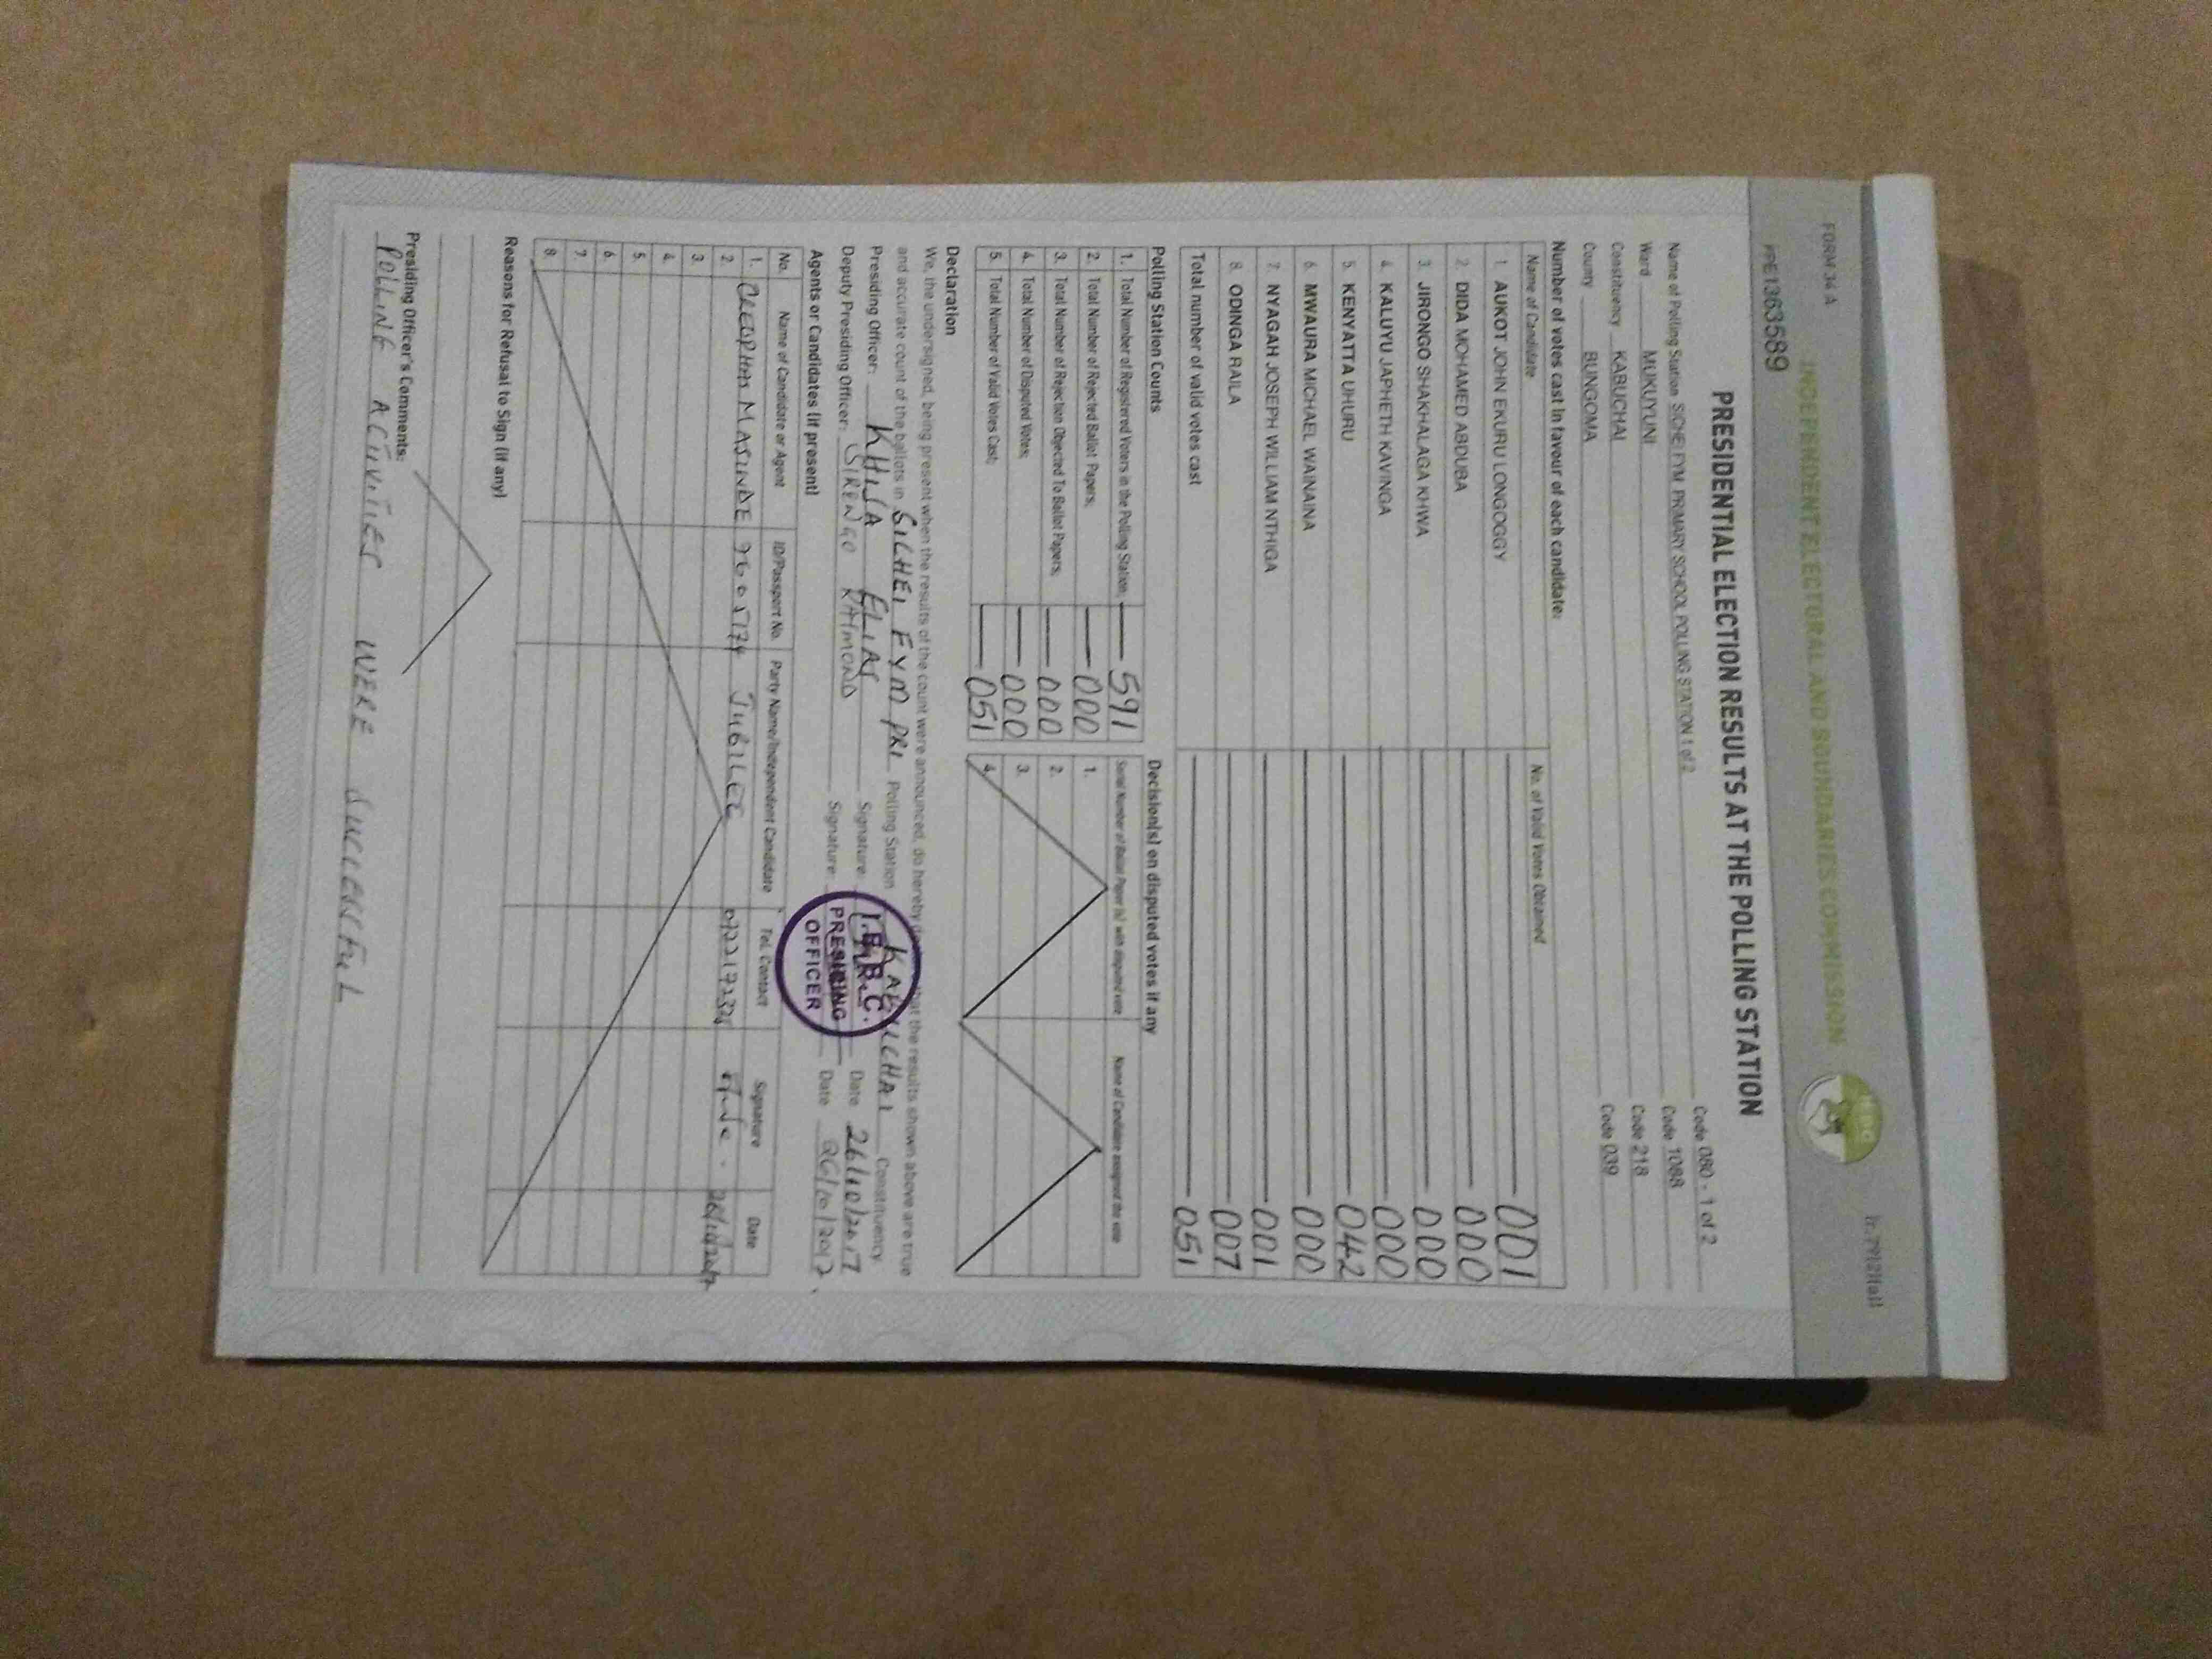 FORM 34 A
INDEPENDENT ELECTORAL AND BOUNDARIES COMMISSION
PRE1363589
PRESIDENTIAL ELECTION RESULTS AT THE POLLING STATION
Name of Polling Station SICHEI FYM PRIMARY SCHOOL POLLING STATION 1 of 2 Code 080 - 1 of 2
Ward MUKUYUNI Code 1088
Constituency KABUCHAI Code 218
County BUNGOMA Code 039
Number of votes cast in favour of each candidate:
Name of Candidate No. of Valid Votes Obtained
1. AUKOT JOHN EKURU LONGOGGY 001
2. DIDA MOHAMED ABDUBA 000
3. JIRONGO SHAKHALAGA KHWA 000
4. KALUYU JAPHETH KAVINGA 000
5. KENYATTA UHURU 042
6. MWAURA MICHAEL WAINAINA 000
7. NYAGAH JOSEPH WILLIAM NTHIGA 001
8. ODINGA RAILA 007
Total number of valid votes cast 051
Polling Station Counts
1. Total Number of Registered Voters in the Polling Station; 591
2. Total Number of Rejected Ballot Papers; 000
3. Total Number of Rejection Objected To Ballot Papers; 000
4. Total Number of Disputed Votes; 000
5. Total Number of Valid Votes Cast; 051
Decision(s) on disputed votes if any
Serial Number of Ballot Paper (s) with disputed vote Name of Candidate assigned the vote
1.
2.
3.
4.
Declaration
We, the undersigned, being present when the results of the count were announced, do hereby that the results shown above are true
and accurate count of the ballots in SICHEI FYM PRI Polling Station KABUCHAI Constituency
Presiding Officer: KHISA ELIAS Signature Date 26/10/2017
Deputy Presiding Officer: SIRENGO RAYMOND Signature Date 26/10/2017
I.E.B.C.
PRESIDING
OFFICER
Agents or Candidates (if present)
No. Name of Candidate or Agent ID/Passport No. Party Name/Independent Candidate Tel. Contact Signature Date
1. CLEOPHAS MASINDE JUBILEE 26/10/2017
2.
3.
4.
5.
6.
7.
8.
Reasons for Refusal to Sign (if any)
Presiding Officer's Comments:
POLLING ACTIVITIES WERE SUCCESSFUL